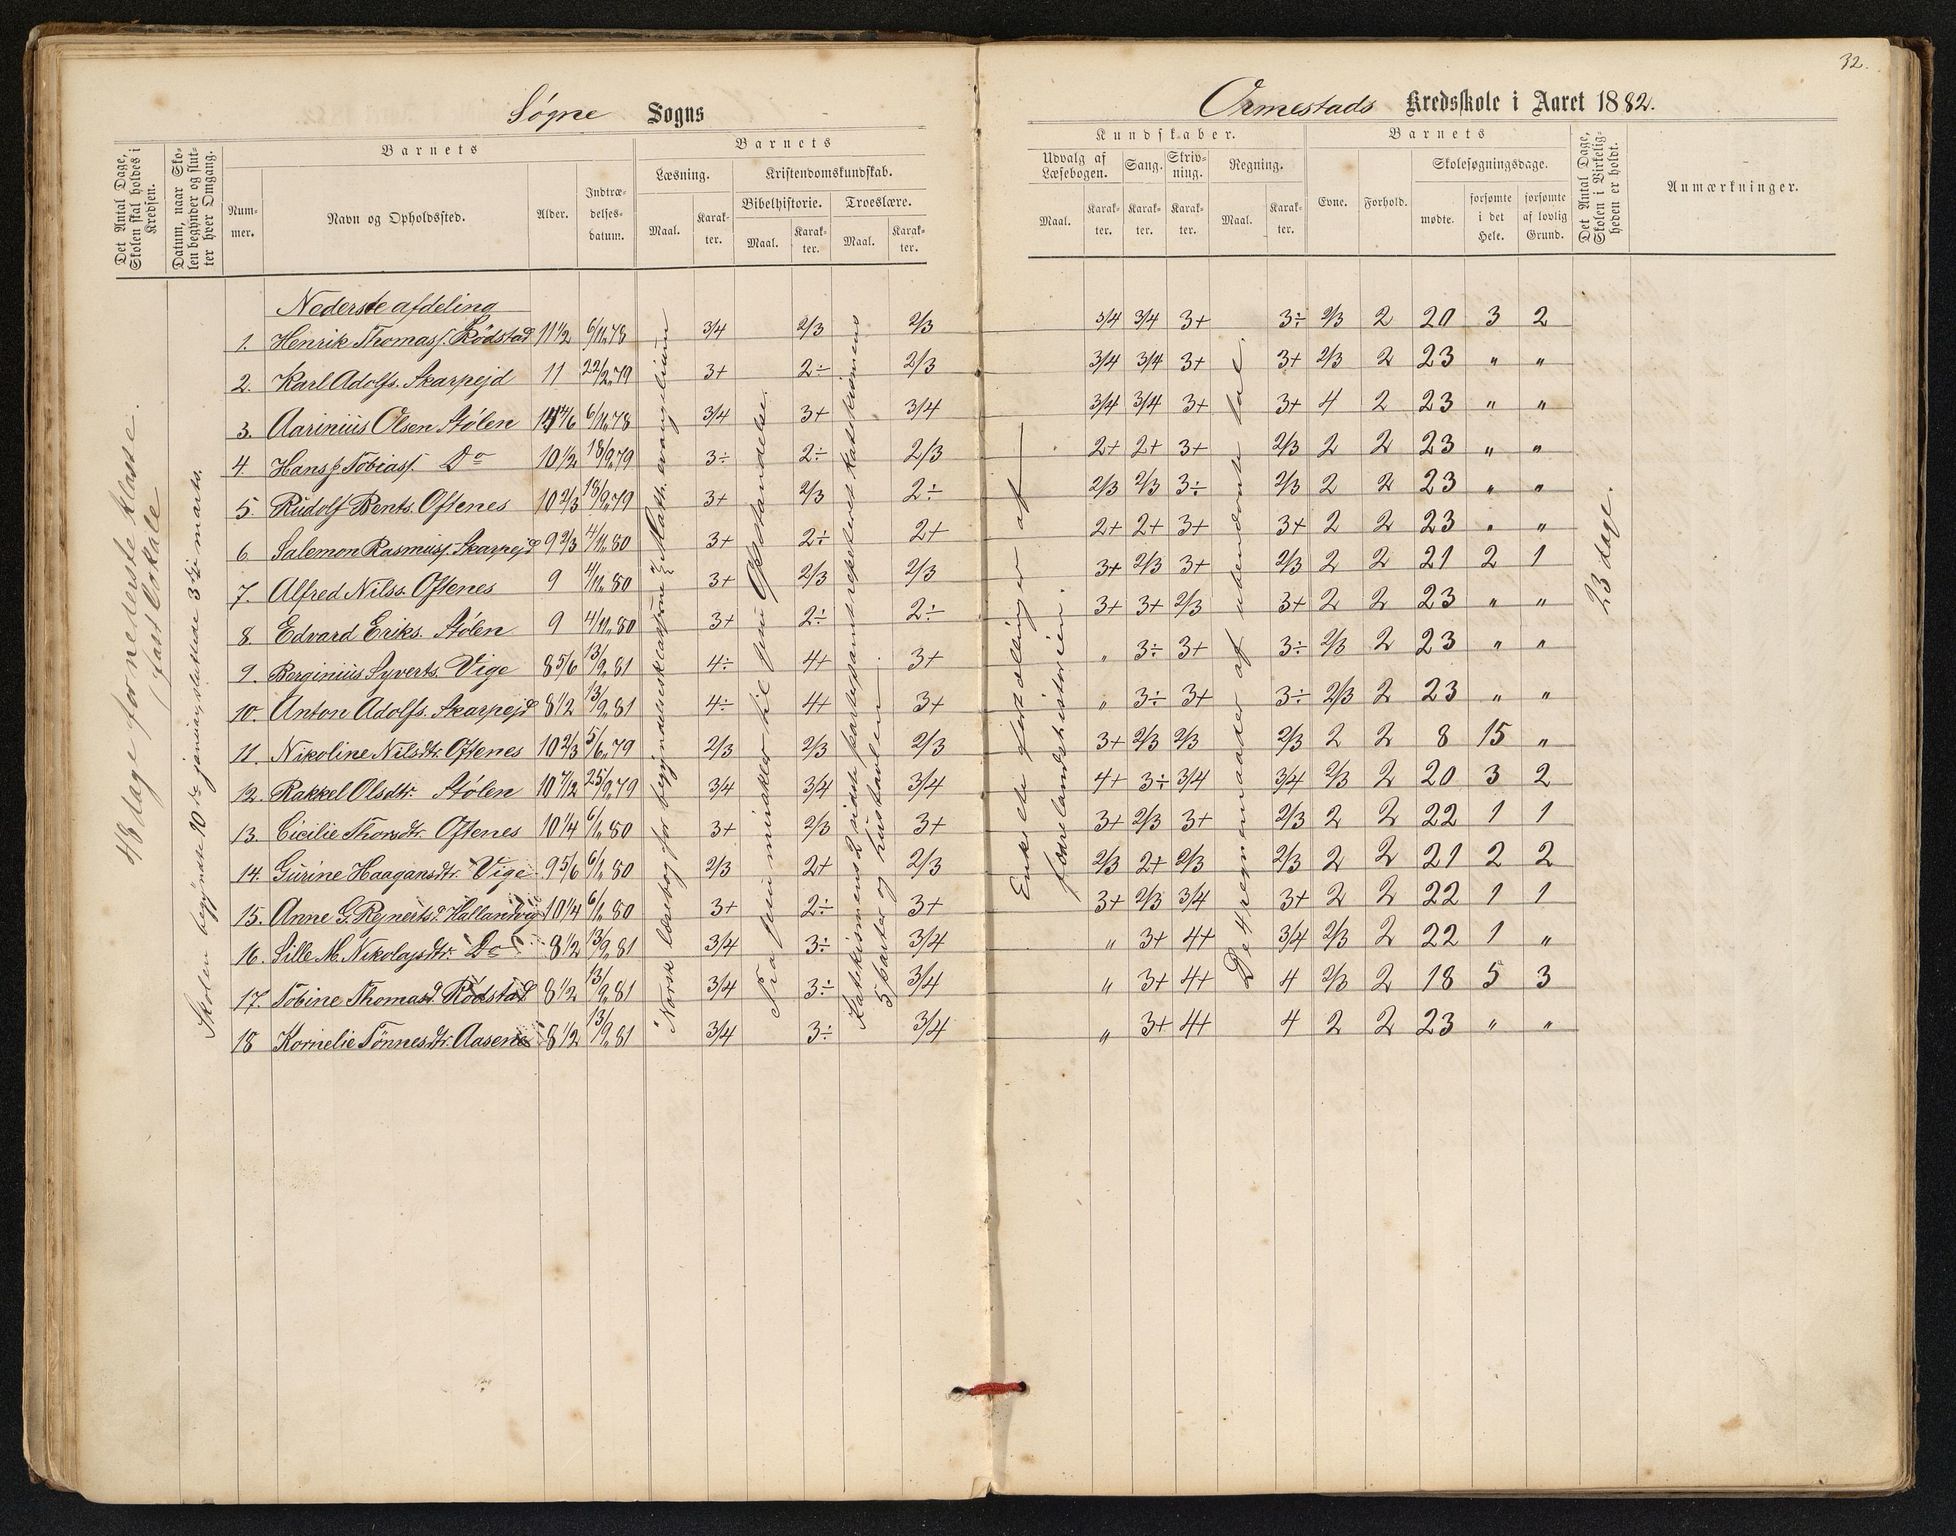 32.
Søgne Sogns
Ormestads Kredsskole i Aaret 1882.
Det Antal Dage, Skolen skal holdes i Kredsen.
Datum, naar Skolen begynder og slutter hver Omgang.
Barnets
Nummer.
Navn og Opholdssted.
Alder.
Indtrædelsesdatum.
Barnets
Læsning.
Maal.
Karakter.
Kristendomskundskab.
Bibelhistorie.
Maal.
Karakter.
Troeslære.
Maal.
Karakter.
Kundskaber.
Udvalg af Læsebogen.
Maal.
Karakter.
Sang.
Karakter.
Skrivning.
Karakter.
Regning.
Maal.
Karakter.
Barnets
Evne.
Forhold.
Skolesøgningsdage.
mødte.
forsømte i det Hele.
forsømte af lovlig Grund.
Det Antal Dage, Skolen i Virkeligheden er holdt.
Anmærkninger.
48 dage for nederste klasse.
i fast lokale
Skolen begyndte 10de januar, sluttede 31te marts.
Norsk læsebog for begynderklasserne
Math. evangelium
Fra Jesu mirakler til Jesu Opstandelse.
Katekismens 2 sidste parter samt repeteret katekismens
5 parter og hustavlen
Enkelte fortællinger af
fædrelandshistorien.
De 4 regnemaader af ubenævnte tal.
23 dage.
Nederste afdeling
1. Henrik Thomass. Rødstad 11 1/2 6/11 78 3/4 2/3 2/3 3/4 3/4 3+ 3÷ 2/3 2 20 3 2
2. Karl Adolfs. Skarpejd 11 22/2 79 3+ 2÷ 2/3 3/4 3/4 3+ 3+ 2/3 2 23 " "
3. Aarinius Olsen Stølen 6/11 78 3/4 3+ 3/4 3/4 3/4 3+ 3+ 4 2 23 " "
4. Hans J. Tobiass. Do 10 1/2 18/9 79 3÷ 2÷ 2/3 2+ 2+ 3+ 2/3 2 2 23 " "
5. Rudolf Bents. Oftenes 10 2/3 18/9 79 3+ 2/3 2÷ 2/3 2/3 3÷ 2/3 2 2 23 " "
6. Salemon Rasmuss. Skarpejd 9 2/3 4/11 80 3+ 2÷ 2+ 2+ 2+ 3+ 3+ 2 2 23 " "
7. Alfred Nilss. Oftenes 9 4/11 80 3+ 2/3 2/3 3+ 2/3 3+ 2/3 2 2 21 2 1
8. Edvard Eriks. Stølen 9 4/11 80 3+ 2÷ 2÷ 3+ 3+ 2/3 3+ 2 2 23 " "
9. Berginius Syverts. Vige 8 5/6 13/9 81 4÷ 4+ 3+ " 3÷ 3+ 3÷ 2/3 2 23 " "
10. Anton Adolfs. Skarpejd 8 1/2 13/9 81 4÷ 4+ 3+ " 3÷ 3+ 3÷ 2/3 2 23 " "
11. Nikoline Nilsdtr. Oftenes 10 2/3 5/6 79 2/3 2/3 2/3 3+ 2/3 2/3 2/3 2 2 8 15 "
12. Rakkel Olsdtr. Stølen 10 7/12 25/9 79 3/4 3/4 3/4 4+ 3÷ 3/4 3/4 2/3 2 20 3 2
13. Cicilie Thorsdtr. Oftenes 10 1/4 6/1 80 3+ 2/3 3+ 3+ 2/3 3+ 2/3 2 2 22 1 1
14. Gurine Haagansdtr. Vige 9 5/6 6/1 80 2/3 2+ 2/3 2/3 2+ 2/3 2/3 2 2 21 2 2
15. Anne G. Rejnertsd. Hallandvig 10 1/4 6/1 80 3+ 2÷ 3+ 3+ 2/3 3/4 3+ 2 2 22 1 1
16. Sille M. Nikolajsdtr. Do 8 1/2 13/9 81 3/4 3÷ 3/4 " 3+ 4+ 3/4 2/3 2 22 1 "
17. Tobine Thomasd. Rødstad 8 1/2 13/9 81 3/4 3÷ 3/4 " 3+ 4+ 4 2/3 2 18 5 3
18 Kornelie Tønnesdtr. Aasene 8 1/2 13/9 81 3/4 3÷ 3/4 " 3+ 4+ 4 2 2 23 " "